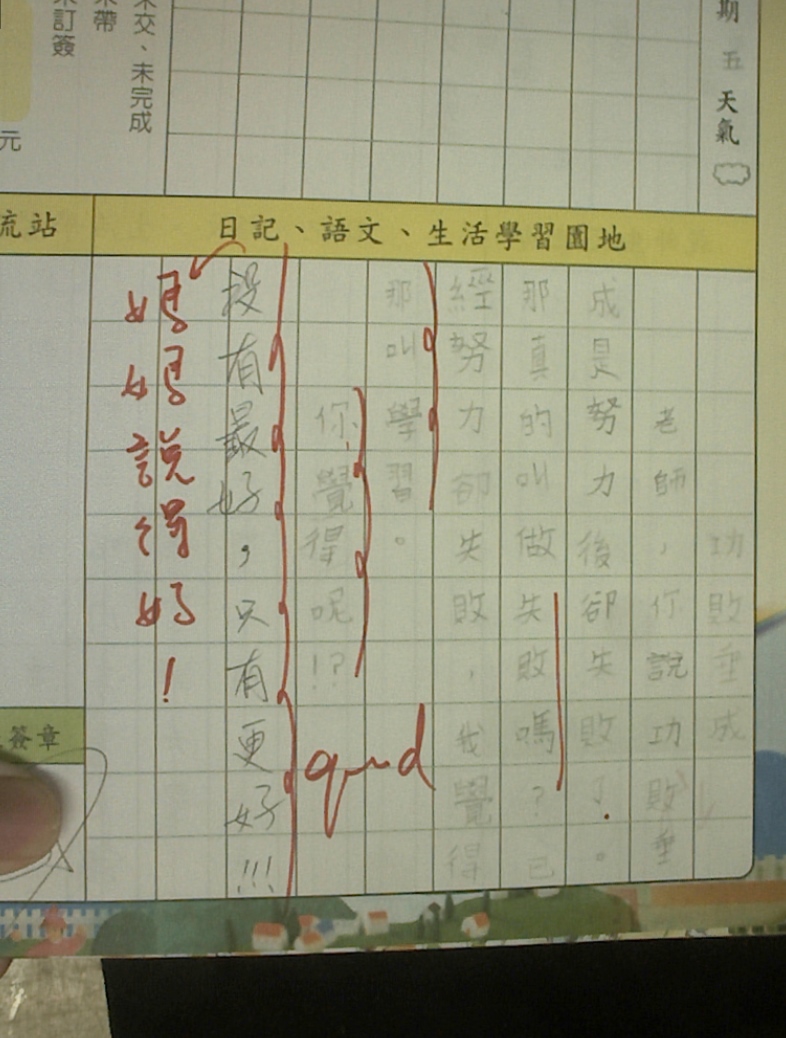 期 五 天氣
未交、未完成
未帶
未訂簽
元
流站
日記、語文、生活學習園地
功敗垂成
老師，你說功敗垂
成是努力後卻失敗了。
那真的叫做失敗嗎？已
經努力卻失敗，我覺得
那叫學習。
你覺得呢！？
good
沒有最好，只有更好!!!
媽媽說得好！
簽章